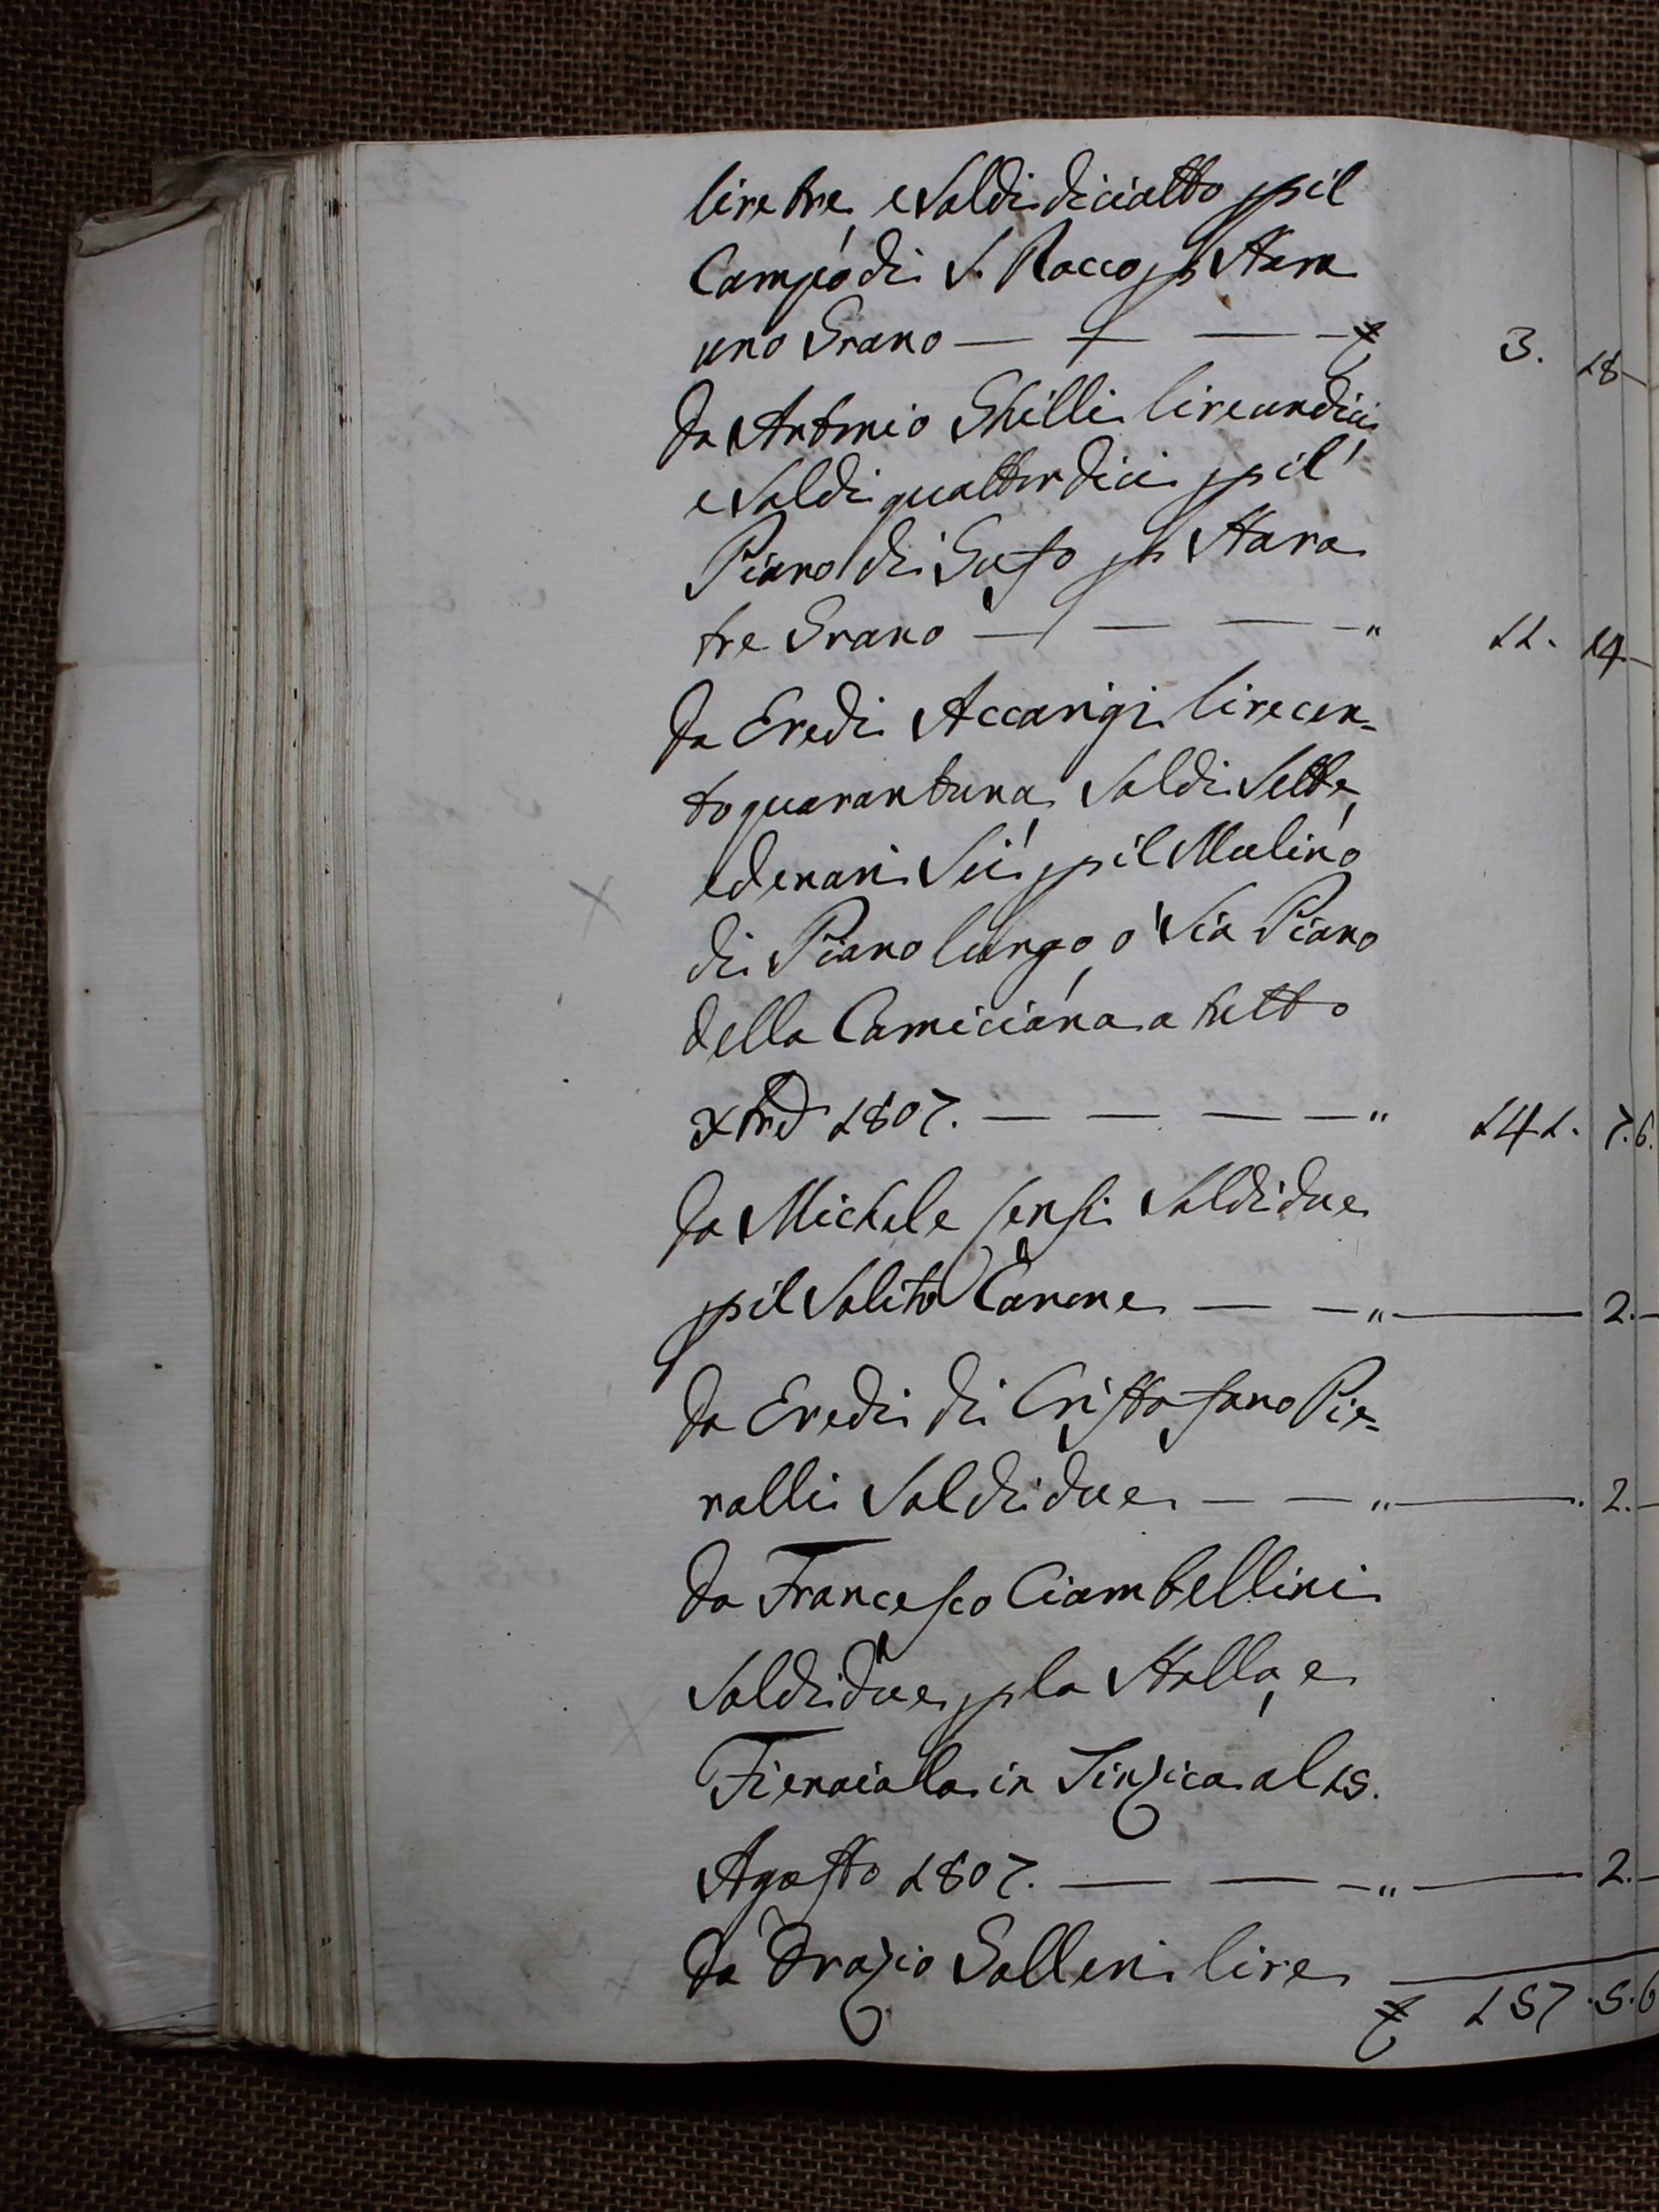 lire tre, e Soldi diciotto p il
Campo di S. Rocco p Stara
uno Grano — — — — £ 3. 18 —
Da Antonio Ghilli lire undici,
e Soldi quattordici p il
Piano di Suso p Stara
tre Grano — — — — " 11. 14 —
Da Eredi Accarigi lire cen=
to quarantuna, Soldi Sette,
e denari Sei p il Mulino
di Piano lungo, o Sia Piano
della Camiciana a tutto
Xbre 1807. — — — — " 141. 7. 6.
Da Michele Sensi Soldi due
p il Solito Canone — — " — 2. —
Da Eredi di Cristofano Pie=
ralli Soldi due — — " — . 2. —
Da Francesco Ciambellini
Soldi due p la Stalla, e
Fienaiola in Sinzica al 15.
Agosto 1807. — — — " — 2. —
Da Orazio Salleni lire
£ 157. 5. 6